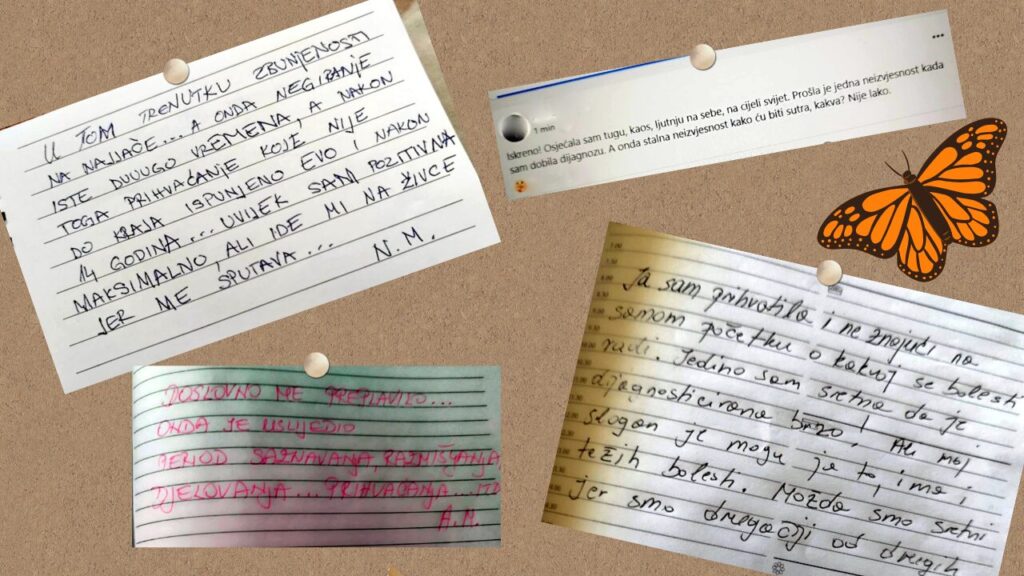 U TOM TRENUTKU ZBUNJENOSTI
NA NAJJAČE... A ONDA NEGIRANJE
ISTE DUUUGO VREMENA, A NAKON
TOGA PRIHVAĆANJE KOJE NIJE
DO KRAJA ISPUNJENO EVO I NAKON
14 GODINA... UVIJEK SAM POZITIVNA
MAKSIMALNO, ALI IDE MI NA ŽIVCE
JER ME SPUTAVA... N.M.
1 min
Iskreno! Osjećala sam tugu, kaos, ljutnju na sebe, na cijeli svijet. Prošla je jedna neizvjesnost kada
sam dobila dijagnozu. A onda stalna neizvjesnost kako ću biti sutra, kakva? Nije lako.
DOSLOVNO ME PREPLAVILO...
ONDA JE USLIJEDIO
PERIOD SAZNAVANJA, RAZMIŠLJANJA,
DJELOVANJA... PRIHVAĆANJA... ITD
A.M.
Ja sam prihvatila i ne znajući na
samom početku o kakvoj se bolesti
radi. Jedino sam sretna da je
dijagnosticirana brzo. Ali moj
slogan je mogu ja to, ima i
težih bolesti. Možda smo sretni
jer smo drugačiji od drugih